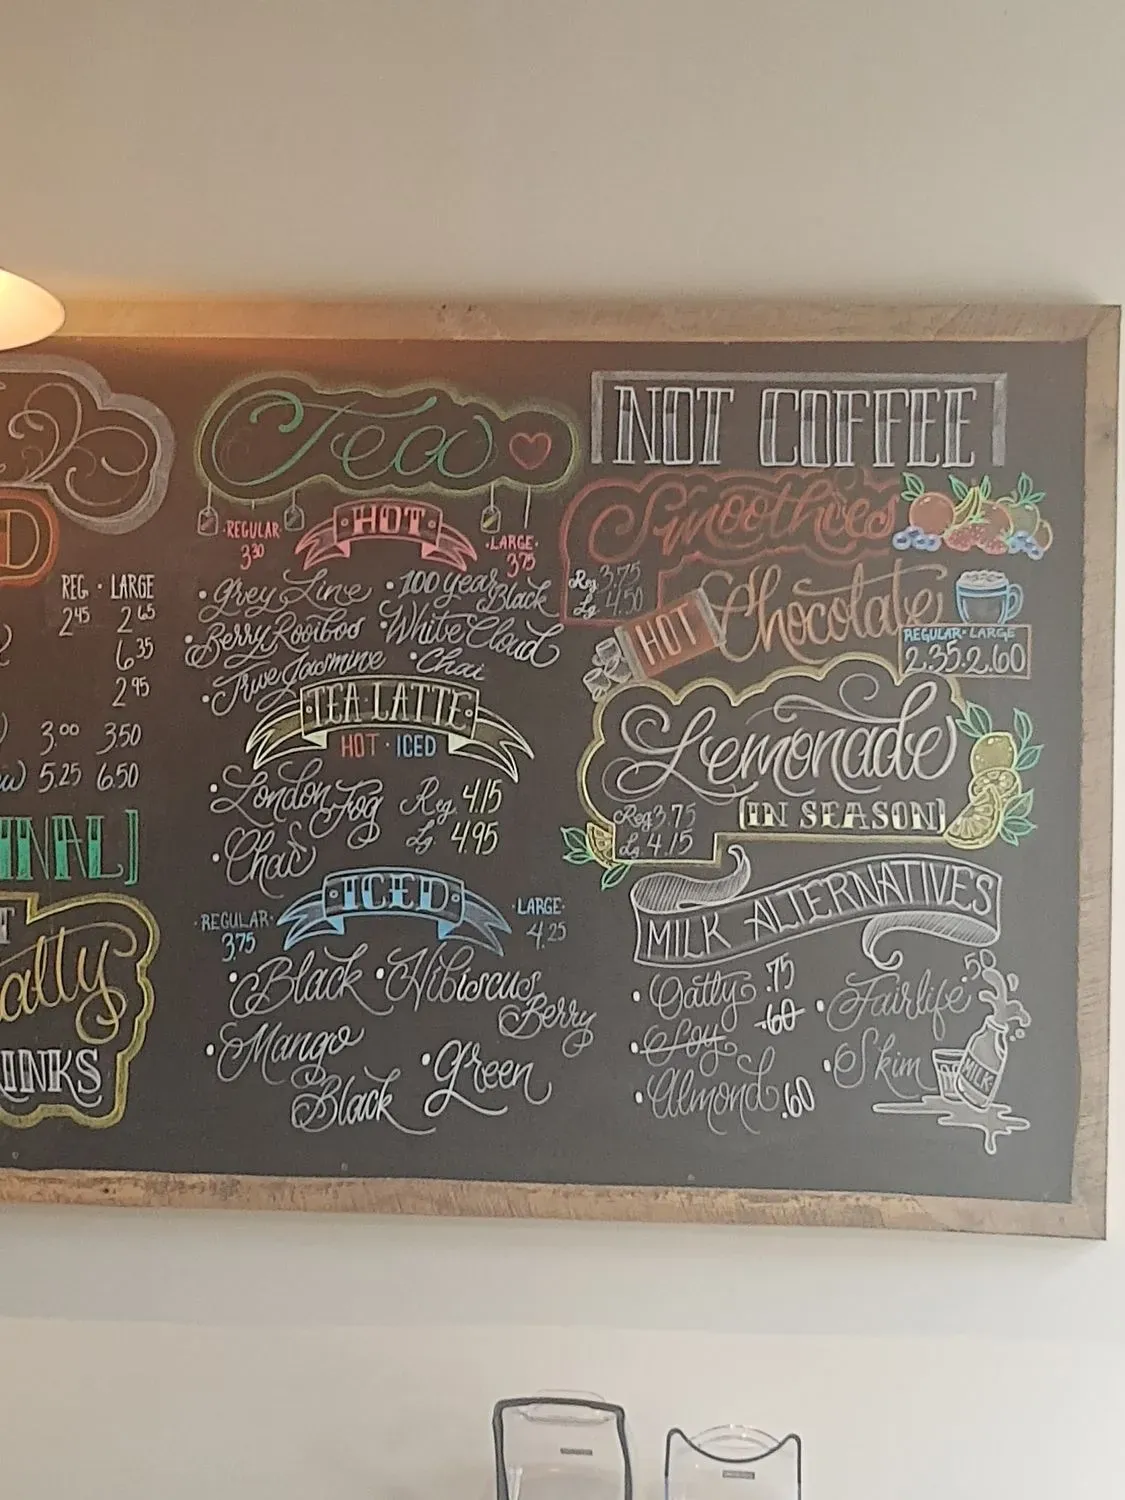 REG · LARGE
2.45 2.65
6.35
2.95
3.00 3.50
5.25 6.50
INKS
Tea
HOT
REGULAR 3.30
LARGE 3.75
· Grey Line · 100 year Black
· Berry Rooibos · White Cloud
· True Jasmine · Chai
TEA·LATTE
HOT · ICED
· London Fog Reg. 4.15
· Chai Lg. 4.95
ICED
REGULAR · 3.75
LARGE · 4.25
· Black · Hibiscus Berry
· Mango Black · Green
NOT COFFEE
Smoothies
Reg. 3.75
Lg. 4.50
HOT Chocolate
REGULAR · LARGE
2.35 · 2.60
Lemonade
[IN SEASON]
Reg 3.75
Lg. 4.15
MILK ALTERNATIVES
· Oatly .75 · Fairlife .50
· Soy .60
· Skim
· Almond .60
MILK